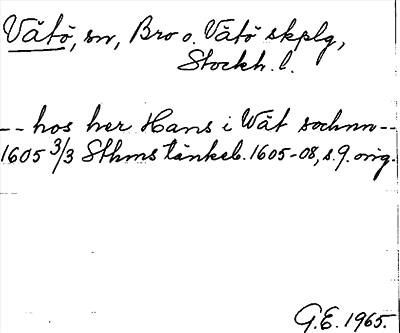 Vätö, sn, Bro o. Vätö skplg,
Stockh. l.
-- hos her Hans i Wät sochnn --
1605 3/3 Sthms tänkeb. 1605-08, s. 9. orig.
G.E. 1965.